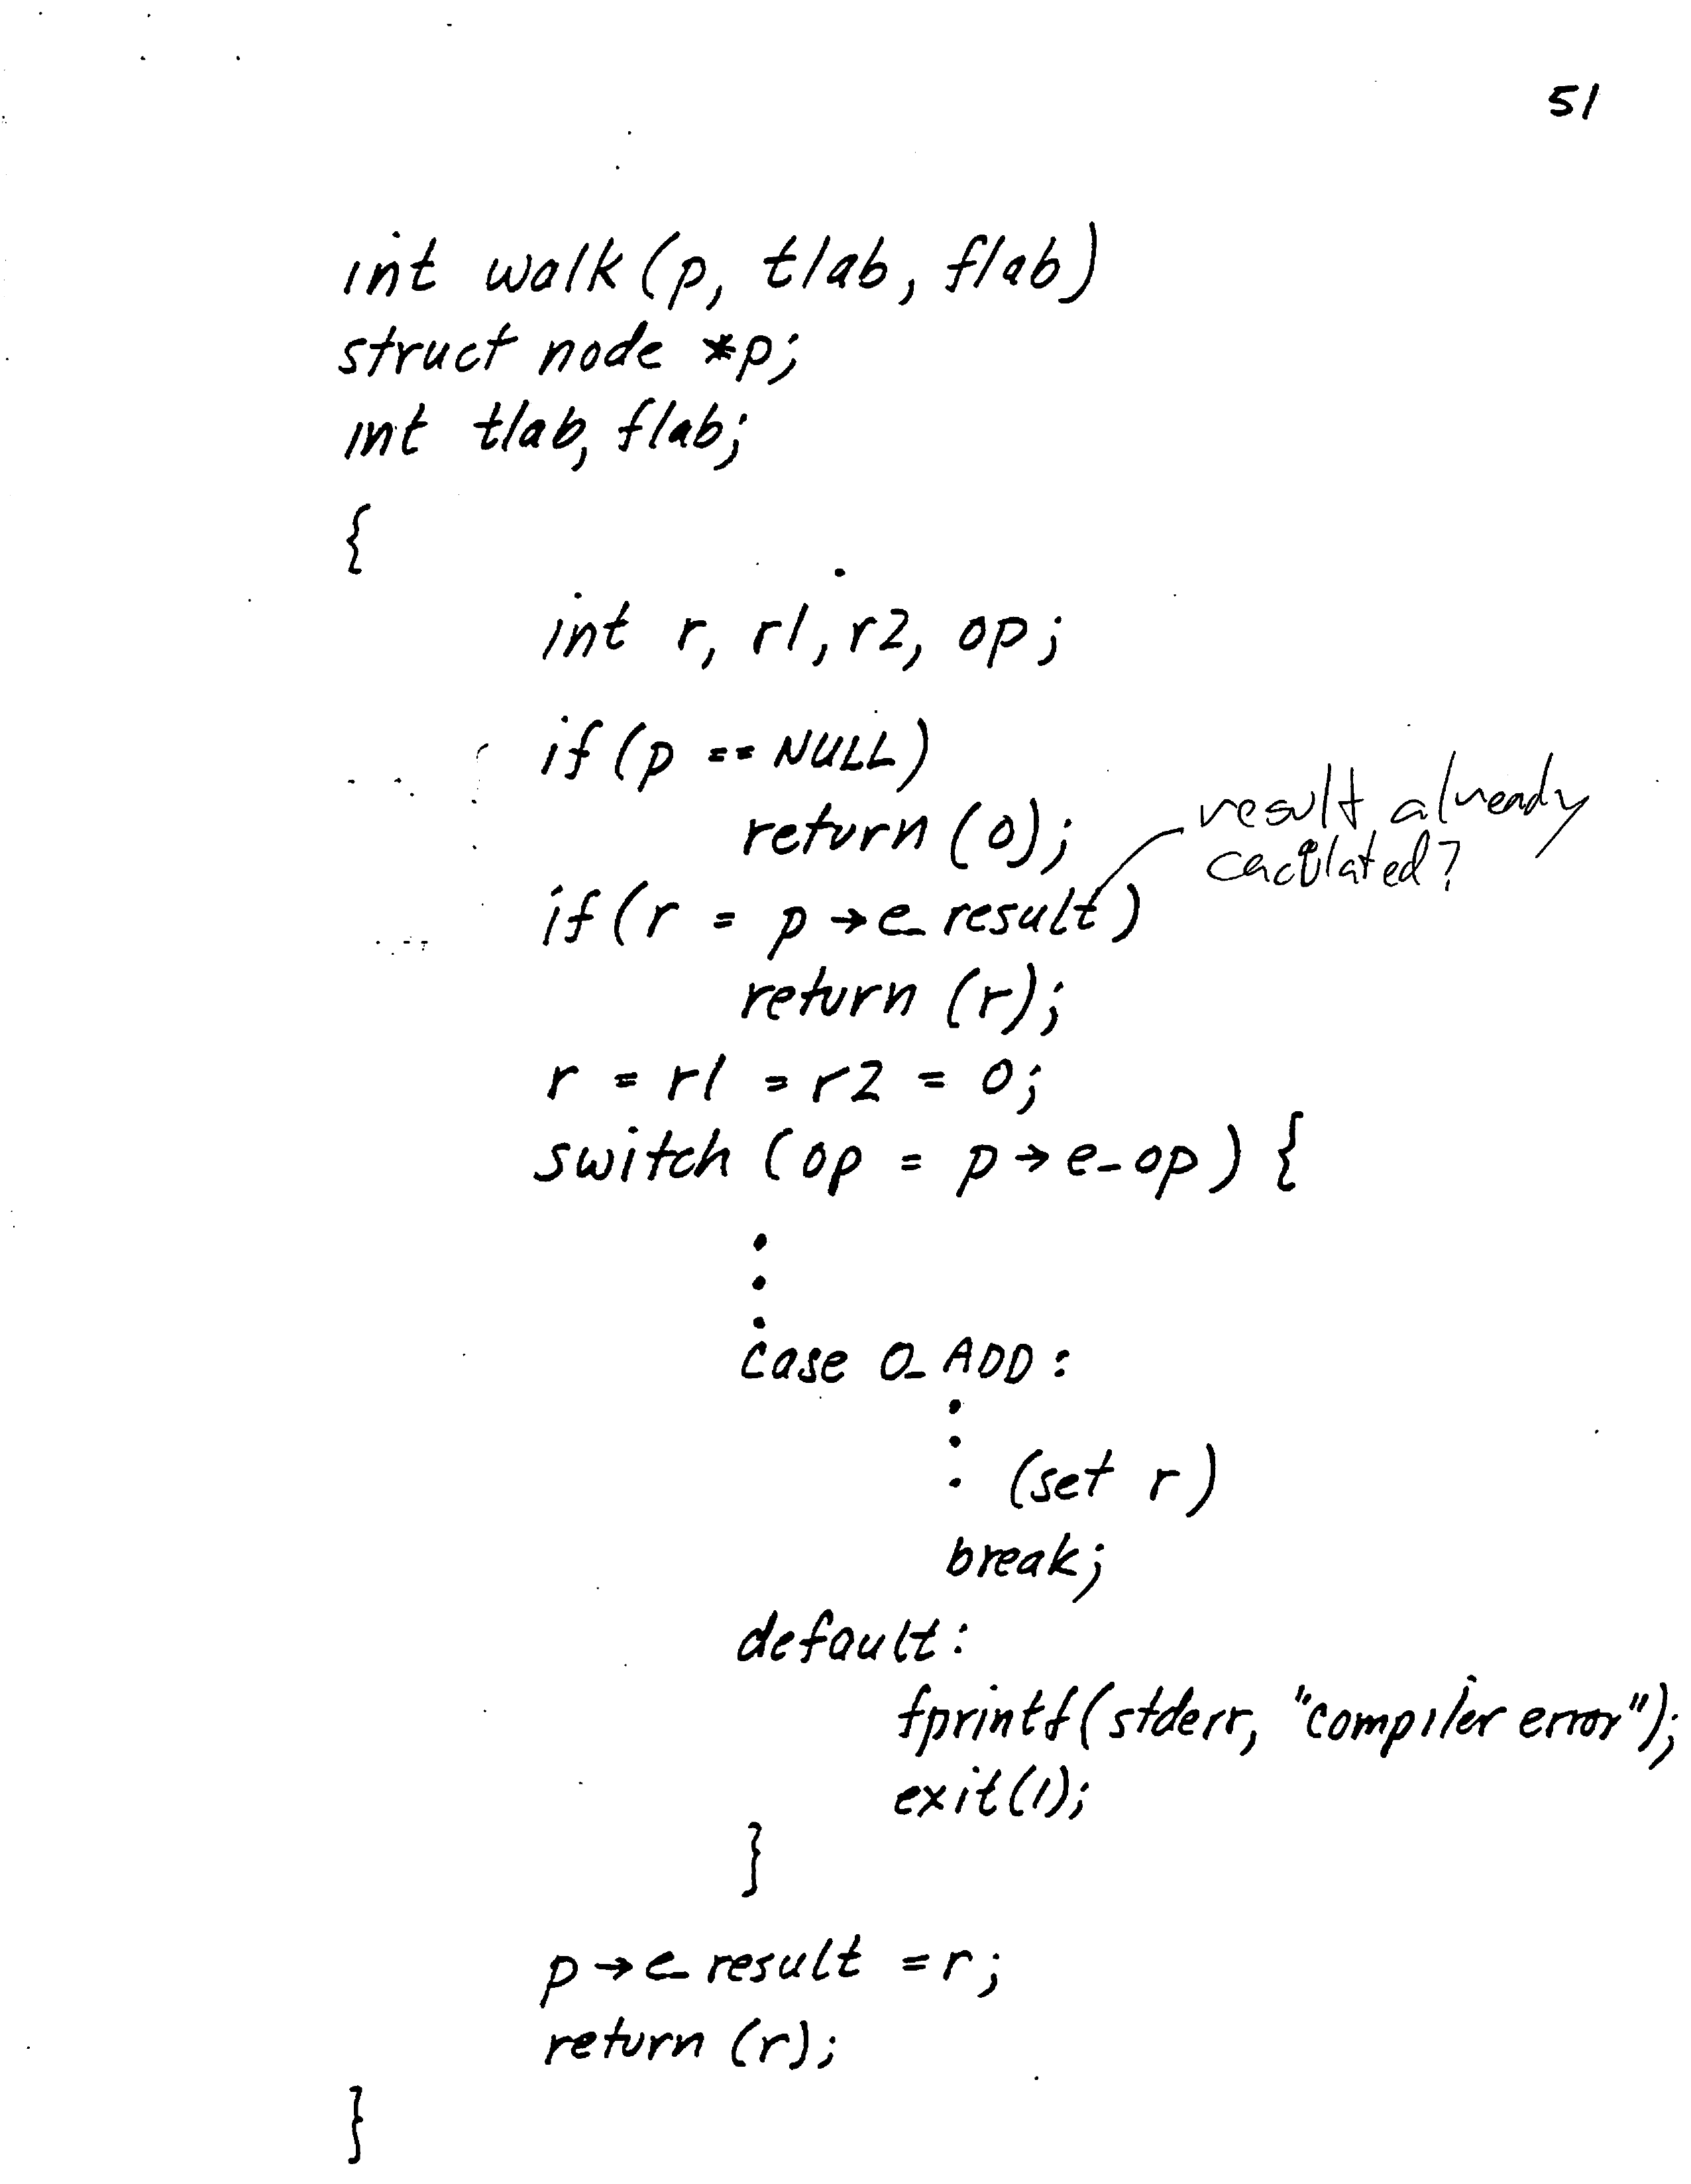 51
int walk(p, tlab, flab)
struct node *p;
int tlab, flab;
{
int r, r1, r2, op;
if(p == NULL)
return(0);
result already
caculated?
if(r = p→e_result)
return(r);
r = r1 = r2 = 0;
switch (op = p→e_op) {
.
.
.
case O_ADD:
.
.
. (set r)
break;
default:
fprintf(stderr, "compiler error");
exit(1);
}
p→e_result = r;
return (r);
}